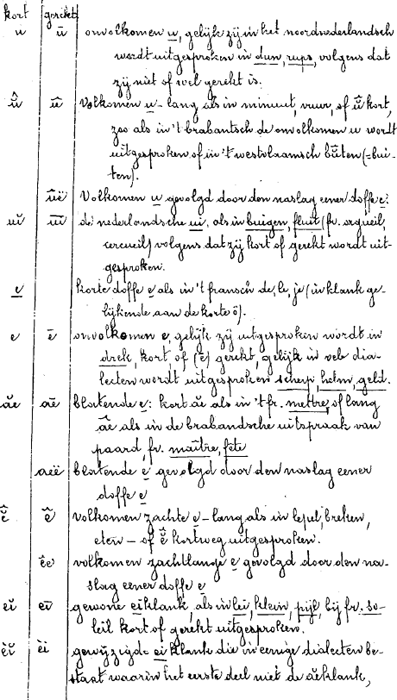 kort gerekt
u ū onvolkomen u, gelijk zij in het noordnederlandsch
wordt uitgesproken in dun, rups, volgens dat
zij niet of wel gerekt is.
û̆ û volkomen u - lang als in minuut, vuur, of û̆ kort,
zoo als in 't brabantsch de onvolkomen u wordt
uitgesproken of in 't westvlaamsch bûten (=bui-
ten).
ûë volkomen u gevolgd door den naslag eener doffe e:
uĭ uī de nederlandsche ui, als in buigen, fluit (fr. orgueil,
cercueil) volgens dat zij kort of gerekt wordt uit-
gesproken.
e korte doffe e als in 't fransch de, le, je (in klank ge-
lijkende aan de korte ö).
e ē onvolkomen e, gelijk zij uitgesproken wordt in
drek, kort of (ē) gerekt, gelijk in vele dia-
lecten wordt uitgesproken scherp, helm, geld.
ăe āe blatende e: kort ăe als in 't fr. mettre, of lang
āe als in de brabandsche uitspraak van
paard, fr. maître, fête
aeë blatende e gevolgd door den naslag eener
doffe e
ê̆ ê volkomen zachte e - lang als in lepel, breken,
eten - of ê̆ kortweg uitgesproken.
êe volkomen zachtlange e gevolgd door den na-
slag eener doffe e
eĭ eī gewone ei klank, als in lei, klein, pijl, bij fr. so-
leil kort of gerekt uitgesproken.
èĭ èi gewijzigde ei klank die in eenige dialecten be-
staat waarin het eerste deel niet de aeklank,